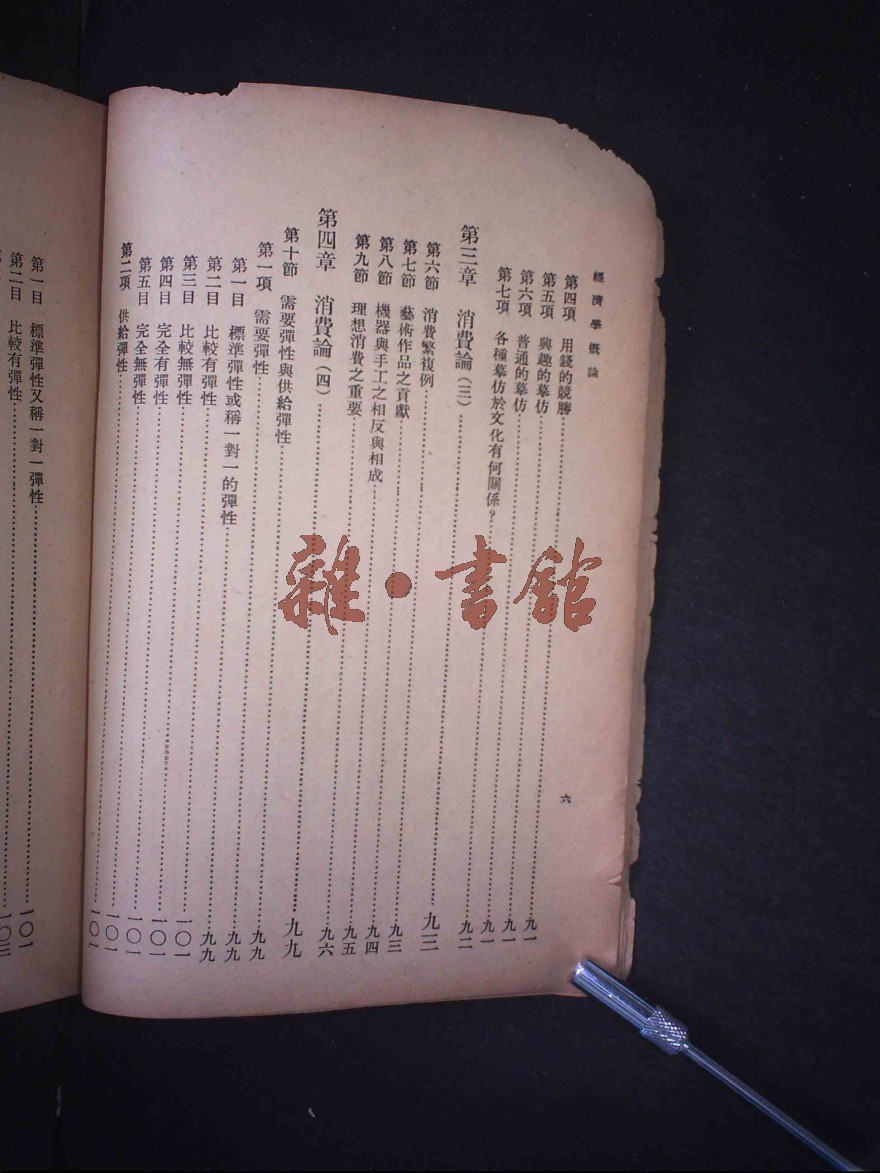 經濟學概論
六
第四項 用錢的競勝……九一
第五項 興趣的摹仿……九一
第六項 普通的摹仿……九一
第七項 各種摹仿於文化有何關係？……九二
第三章 消費論（三）……九三
第六節 消費繁複例……九三
第七節 藝術作品之貢獻……九四
第八節 機器與手工之相反與相成……九五
第九節 理想消費之重要……九六
第四章 消費論（四）……九九
第十節 需要彈性與供給彈性……九九
第一項 需要彈性……九九
第一目 標準彈性或稱一對一的彈性……九九
第二目 比較有彈性……一〇一
第三目 比較無彈性……一〇一
第四目 完全有彈性……一〇一
第五目 完全無彈性……一〇一
第二項 供給彈性……一〇一
第一目 標準彈性又稱一對一彈性……一〇一
第二目 比較有彈性……一〇三
雜·書館